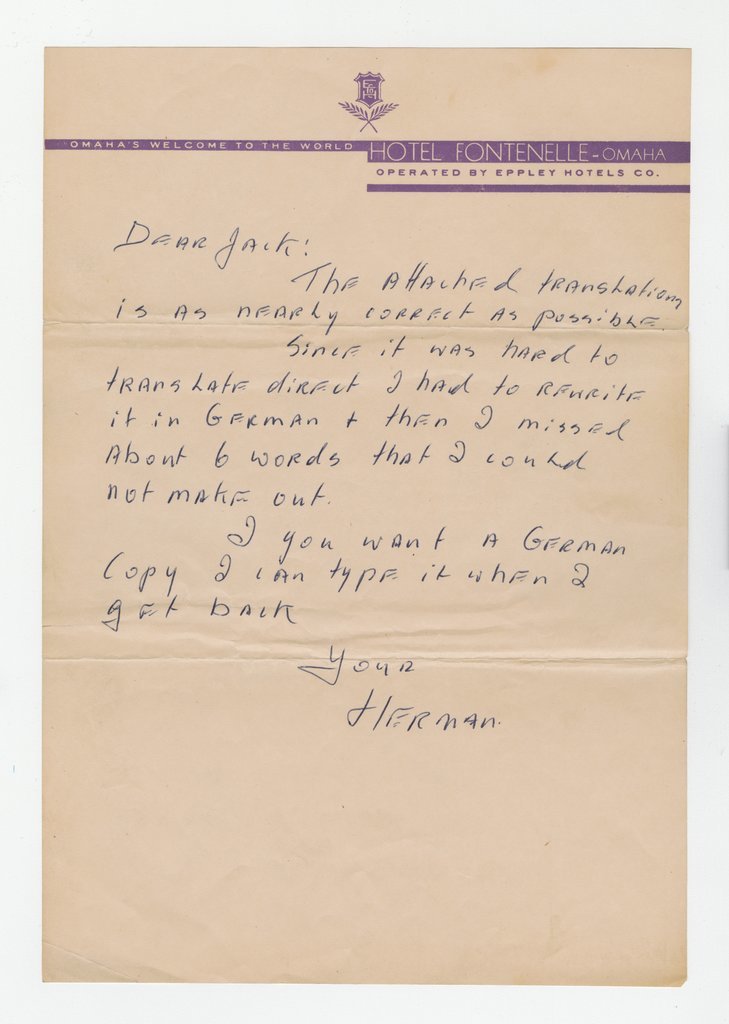 OMAHA'S WELCOME TO THE WORLD
HOTEL FONTENELLE - OMAHA
OPERATED BY EPPLEY HOTELS CO.
Dear Jack:
The attached translation
is as nearly correct as possible.
Since it was hard to
translate direct I had to rewrite
it in German + then I missed
about 6 words that I could
not make out.
I you want a German
copy I can type it when I
get back
Your
Herman.